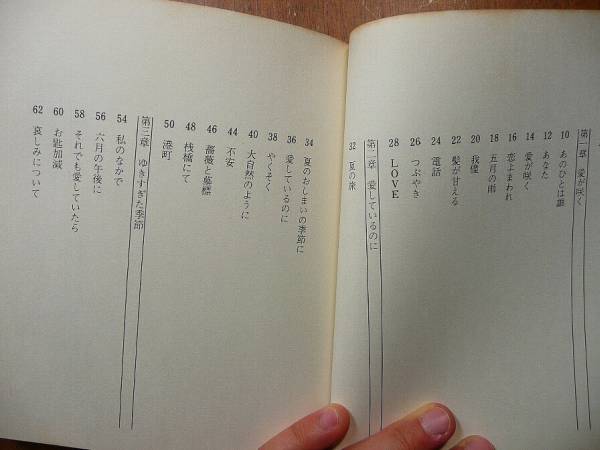 第一章 愛が咲く
10 あのひとは誰
12 あなた
14 愛が咲く
16 恋よまわれ
18 五月の雨
20 我儘
22 髪が甘える
24 電話
26 つぶやき
28 LOVE
第二章 愛しているのに
32 夏の旅
34 夏のおしまいの季節に
36 愛しているのに
38 やくそく
40 大自然のように
44 不安
46 薔薇と墓標
48 桟橋にて
50 港町
第三章 ゆきすぎた季節
54 私のなかで
56 六月の午後に
58 それでも愛していたら
60 お匙加減
62 哀しみについて